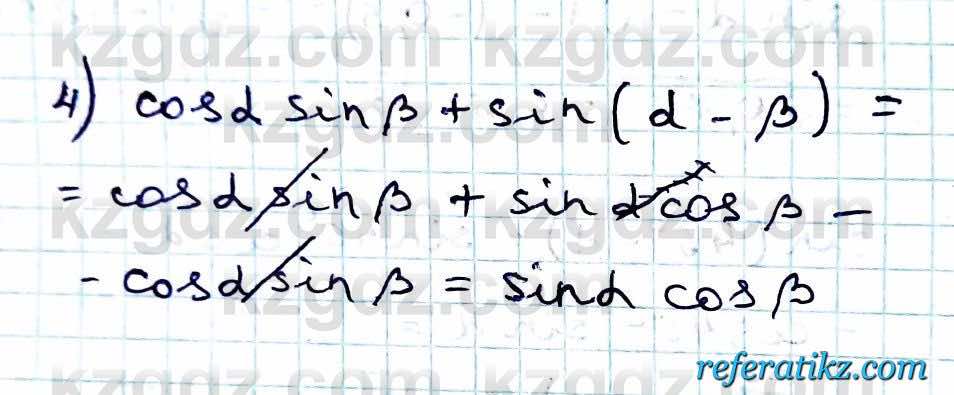 kzgdz.com kzgdz.com
4) cosα sinβ + sin(α - β) =
= cosα sinβ + sinα cosβ -
- cosα sinβ = sinα cosβ
kzgdz.com kzgdz.com
referatikz.com